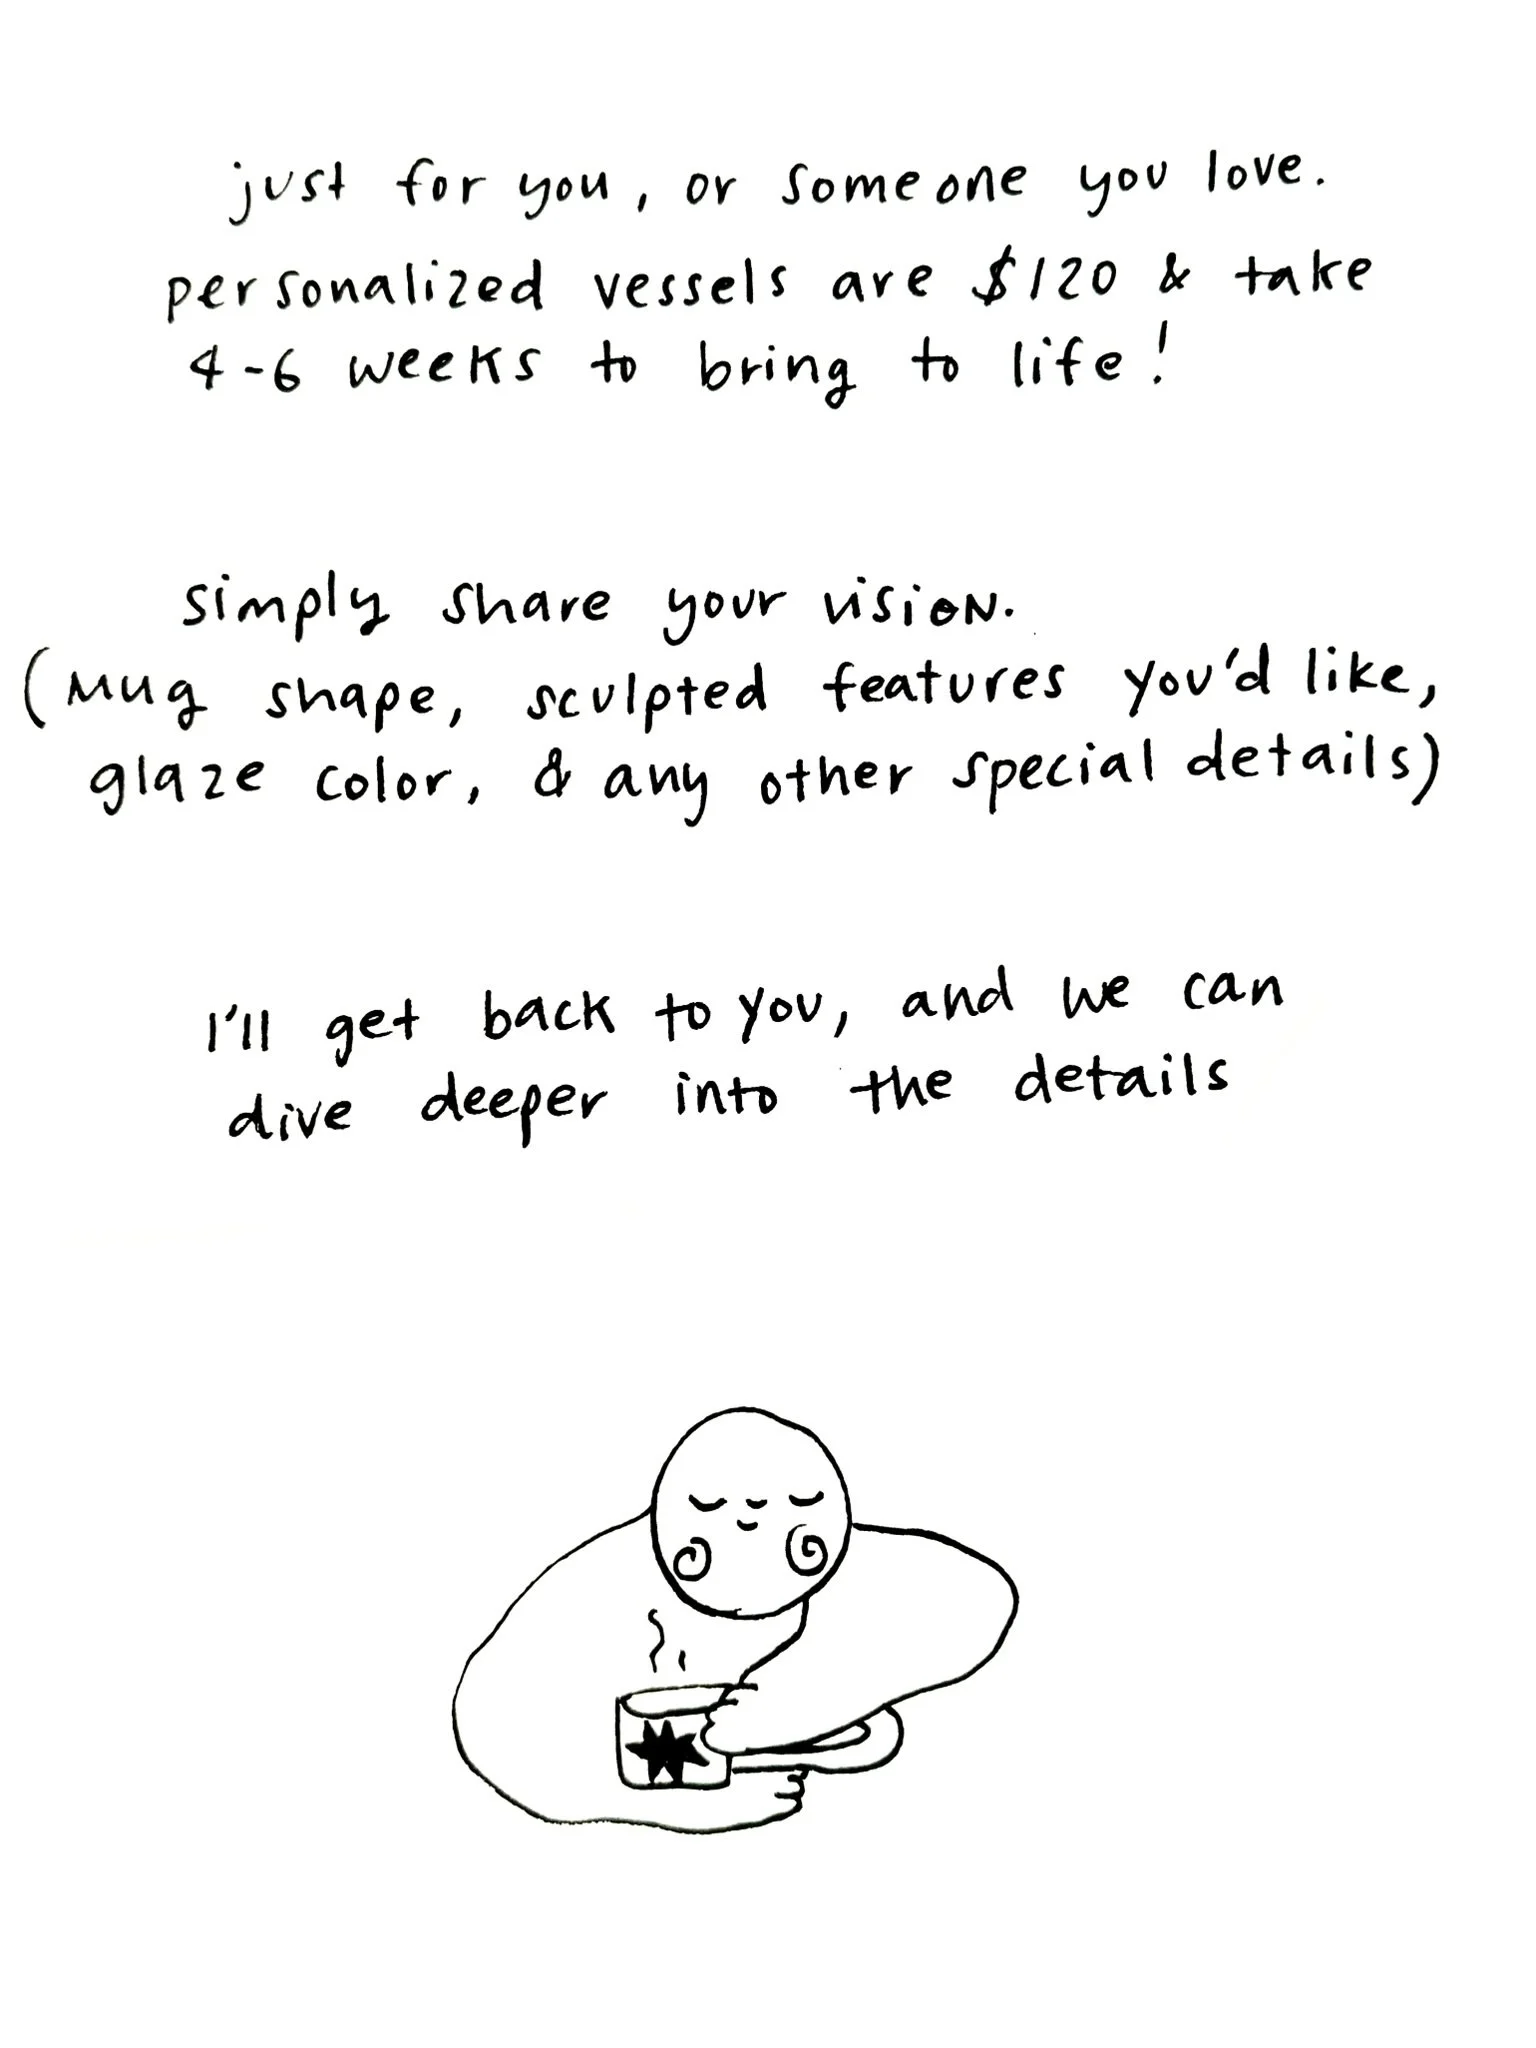 just for you, or someone you love.
personalized vessels are $120 & take
4-6 weeks to bring to life!
simply share your vision.
(mug shape, sculpted features you'd like,
glaze color, & any other special details)
I'll get back to you, and we can
dive deeper into the details